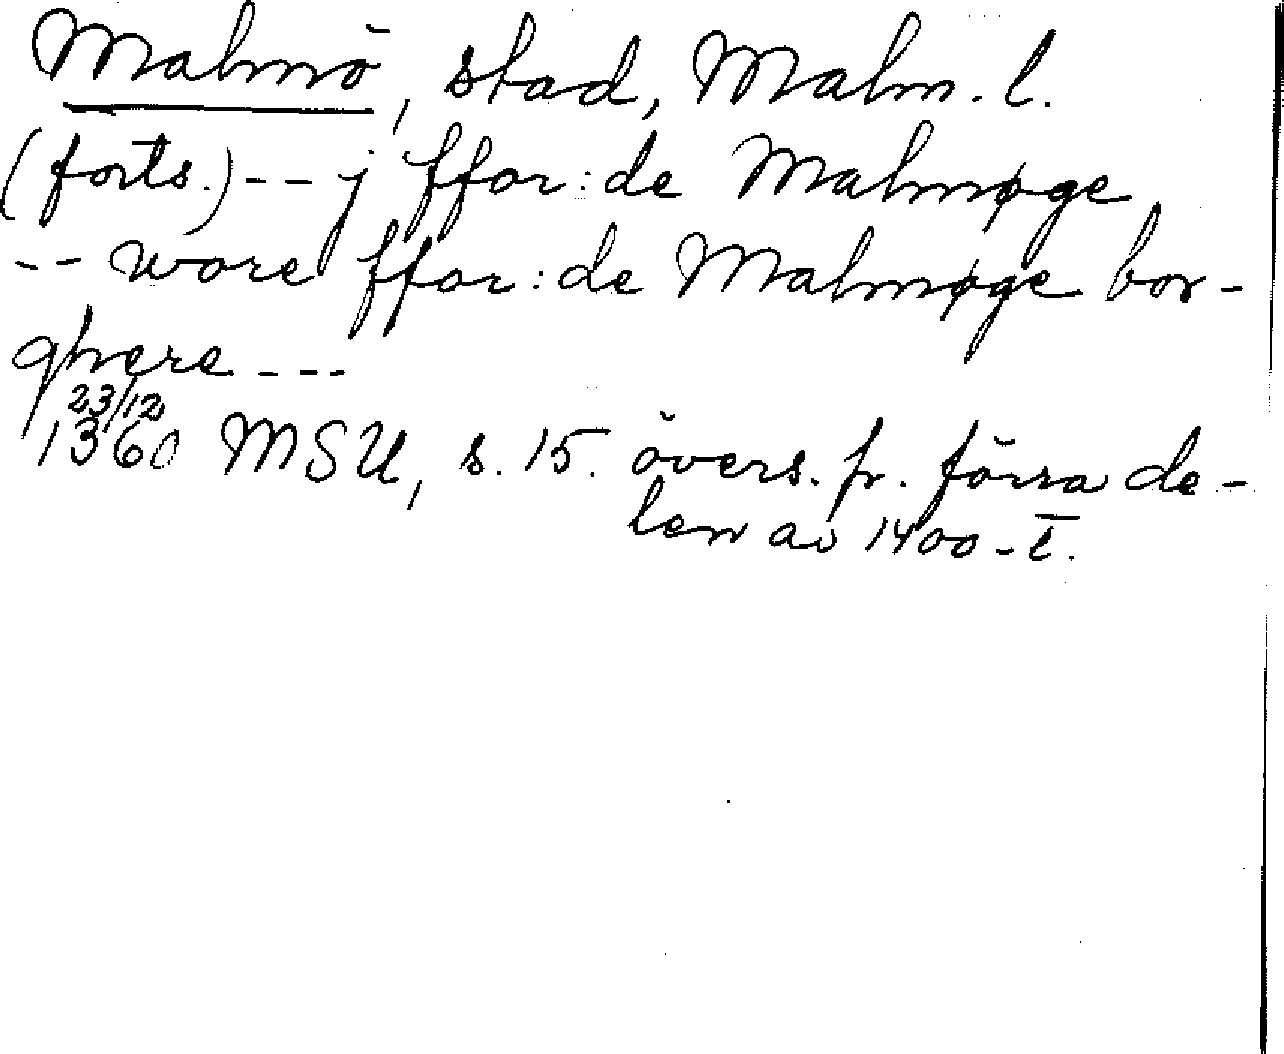 Malmö, stad, Malm. l.
(forts.) -- j ffor:de Malmøge
-- wore ffor:de Malmøge bor-
ghere ---
23/12
1360 MSU, s. 15. övers. fr. förra de-
len av 1400-t.